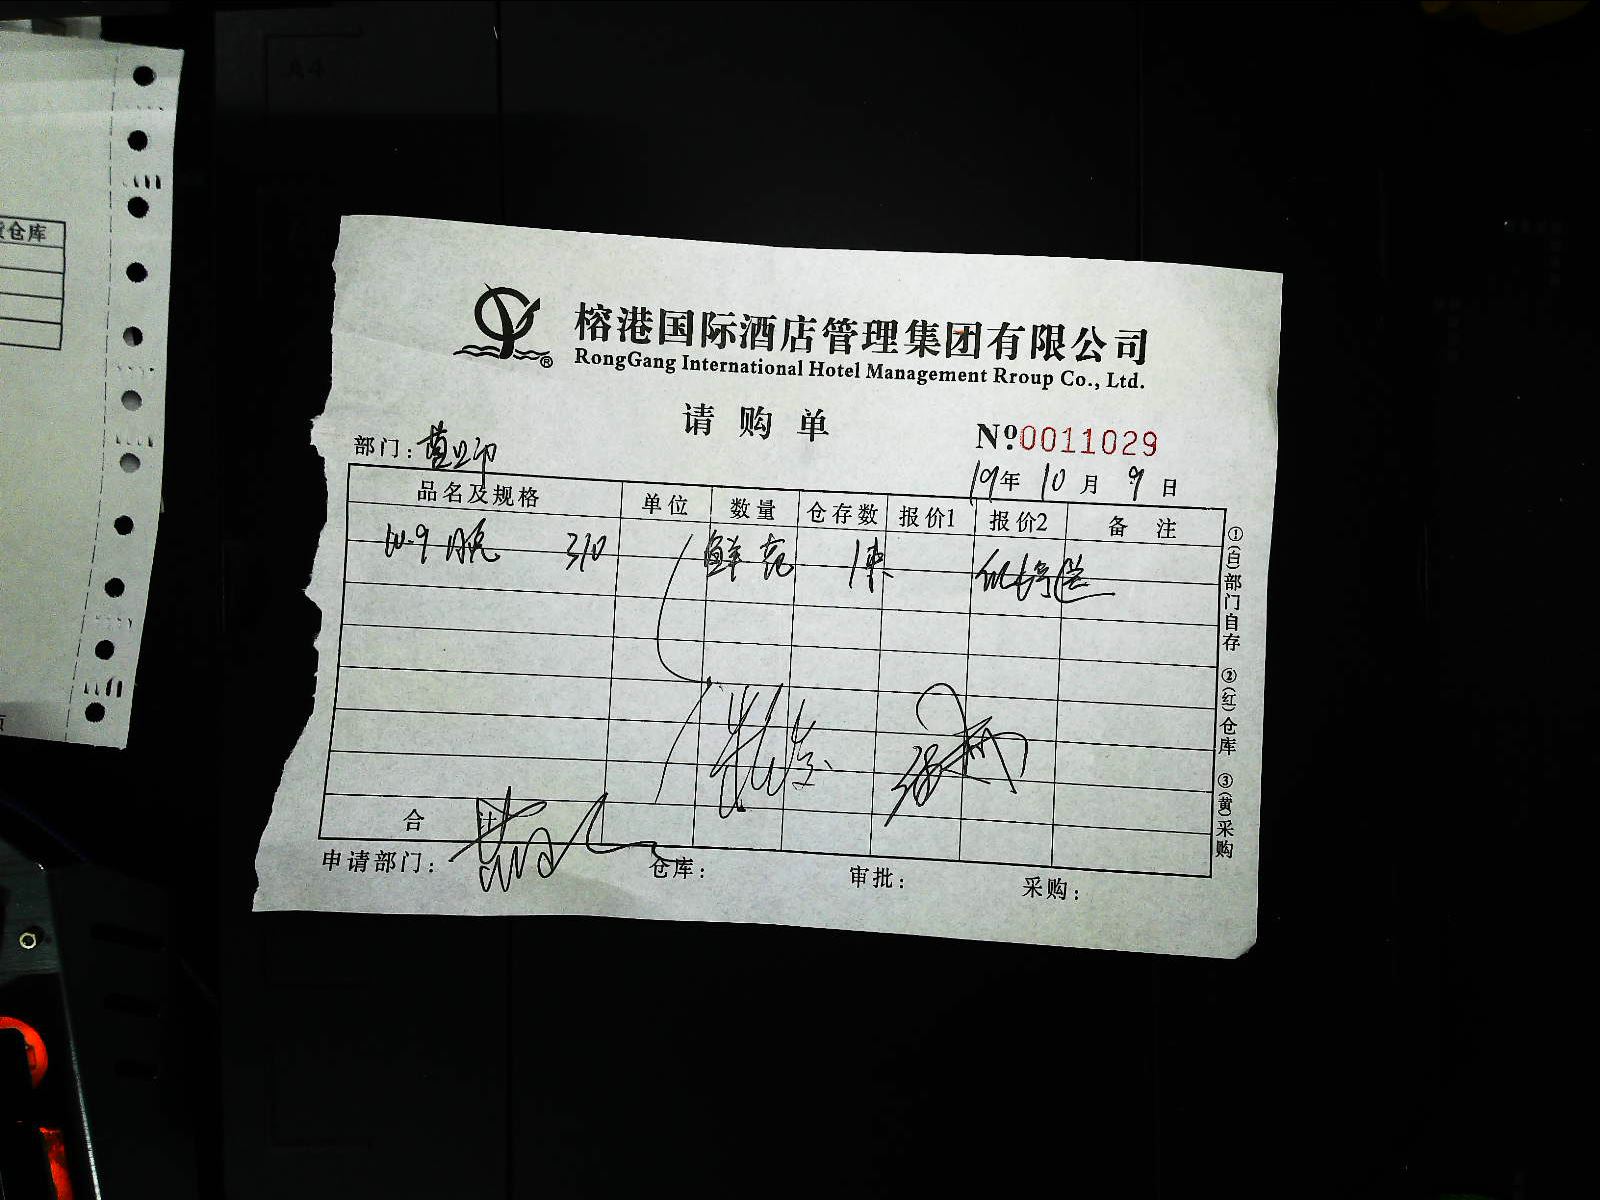 榕港国际酒店管理集团有限公司
RongGang International Hotel Management Rroup Co., Ltd.
请购单
Nº0011029
部门：营业部
19年 10月 9日
品名及规格 单位 数量 仓存数 报价1 报价2 备注
310 鲜花 1束
合计
申请部门： 仓库： 审批： 采购：
①(白)部门自存 ②(红)仓库 ③(黄)采购
仓库